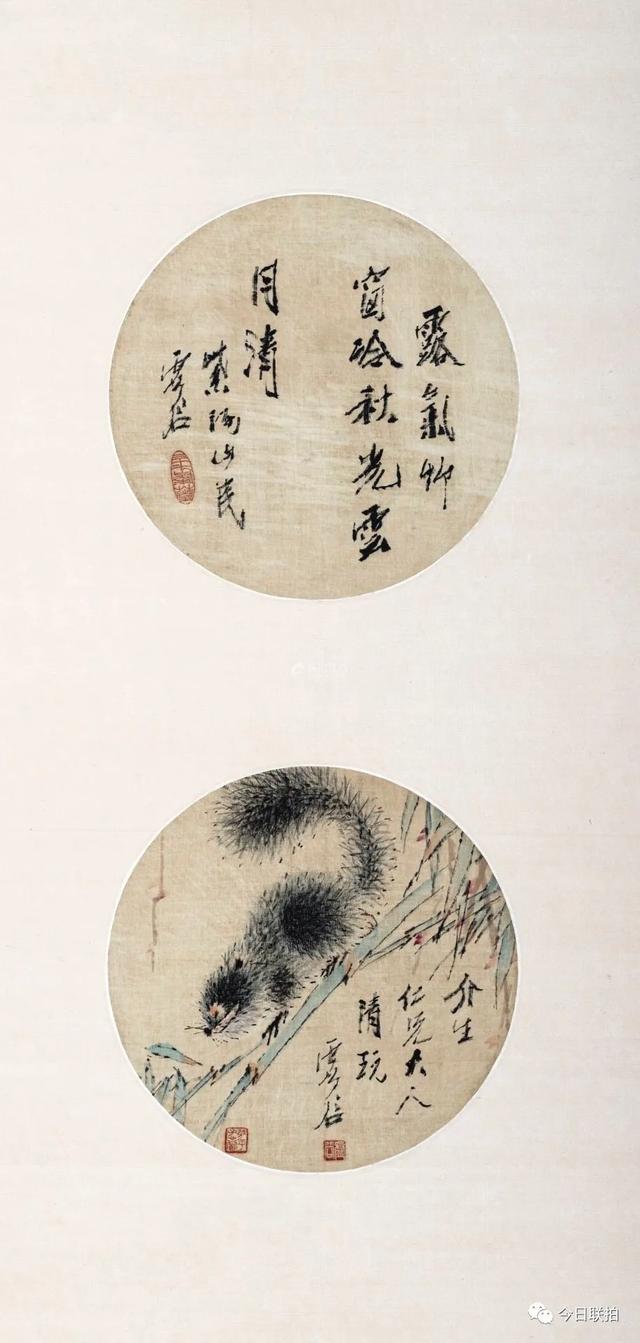 露氣竹
窗冷秋光雲
月清
紫陽山民
虛谷
介生
仁兄大人
清玩
虛谷
今日联拍